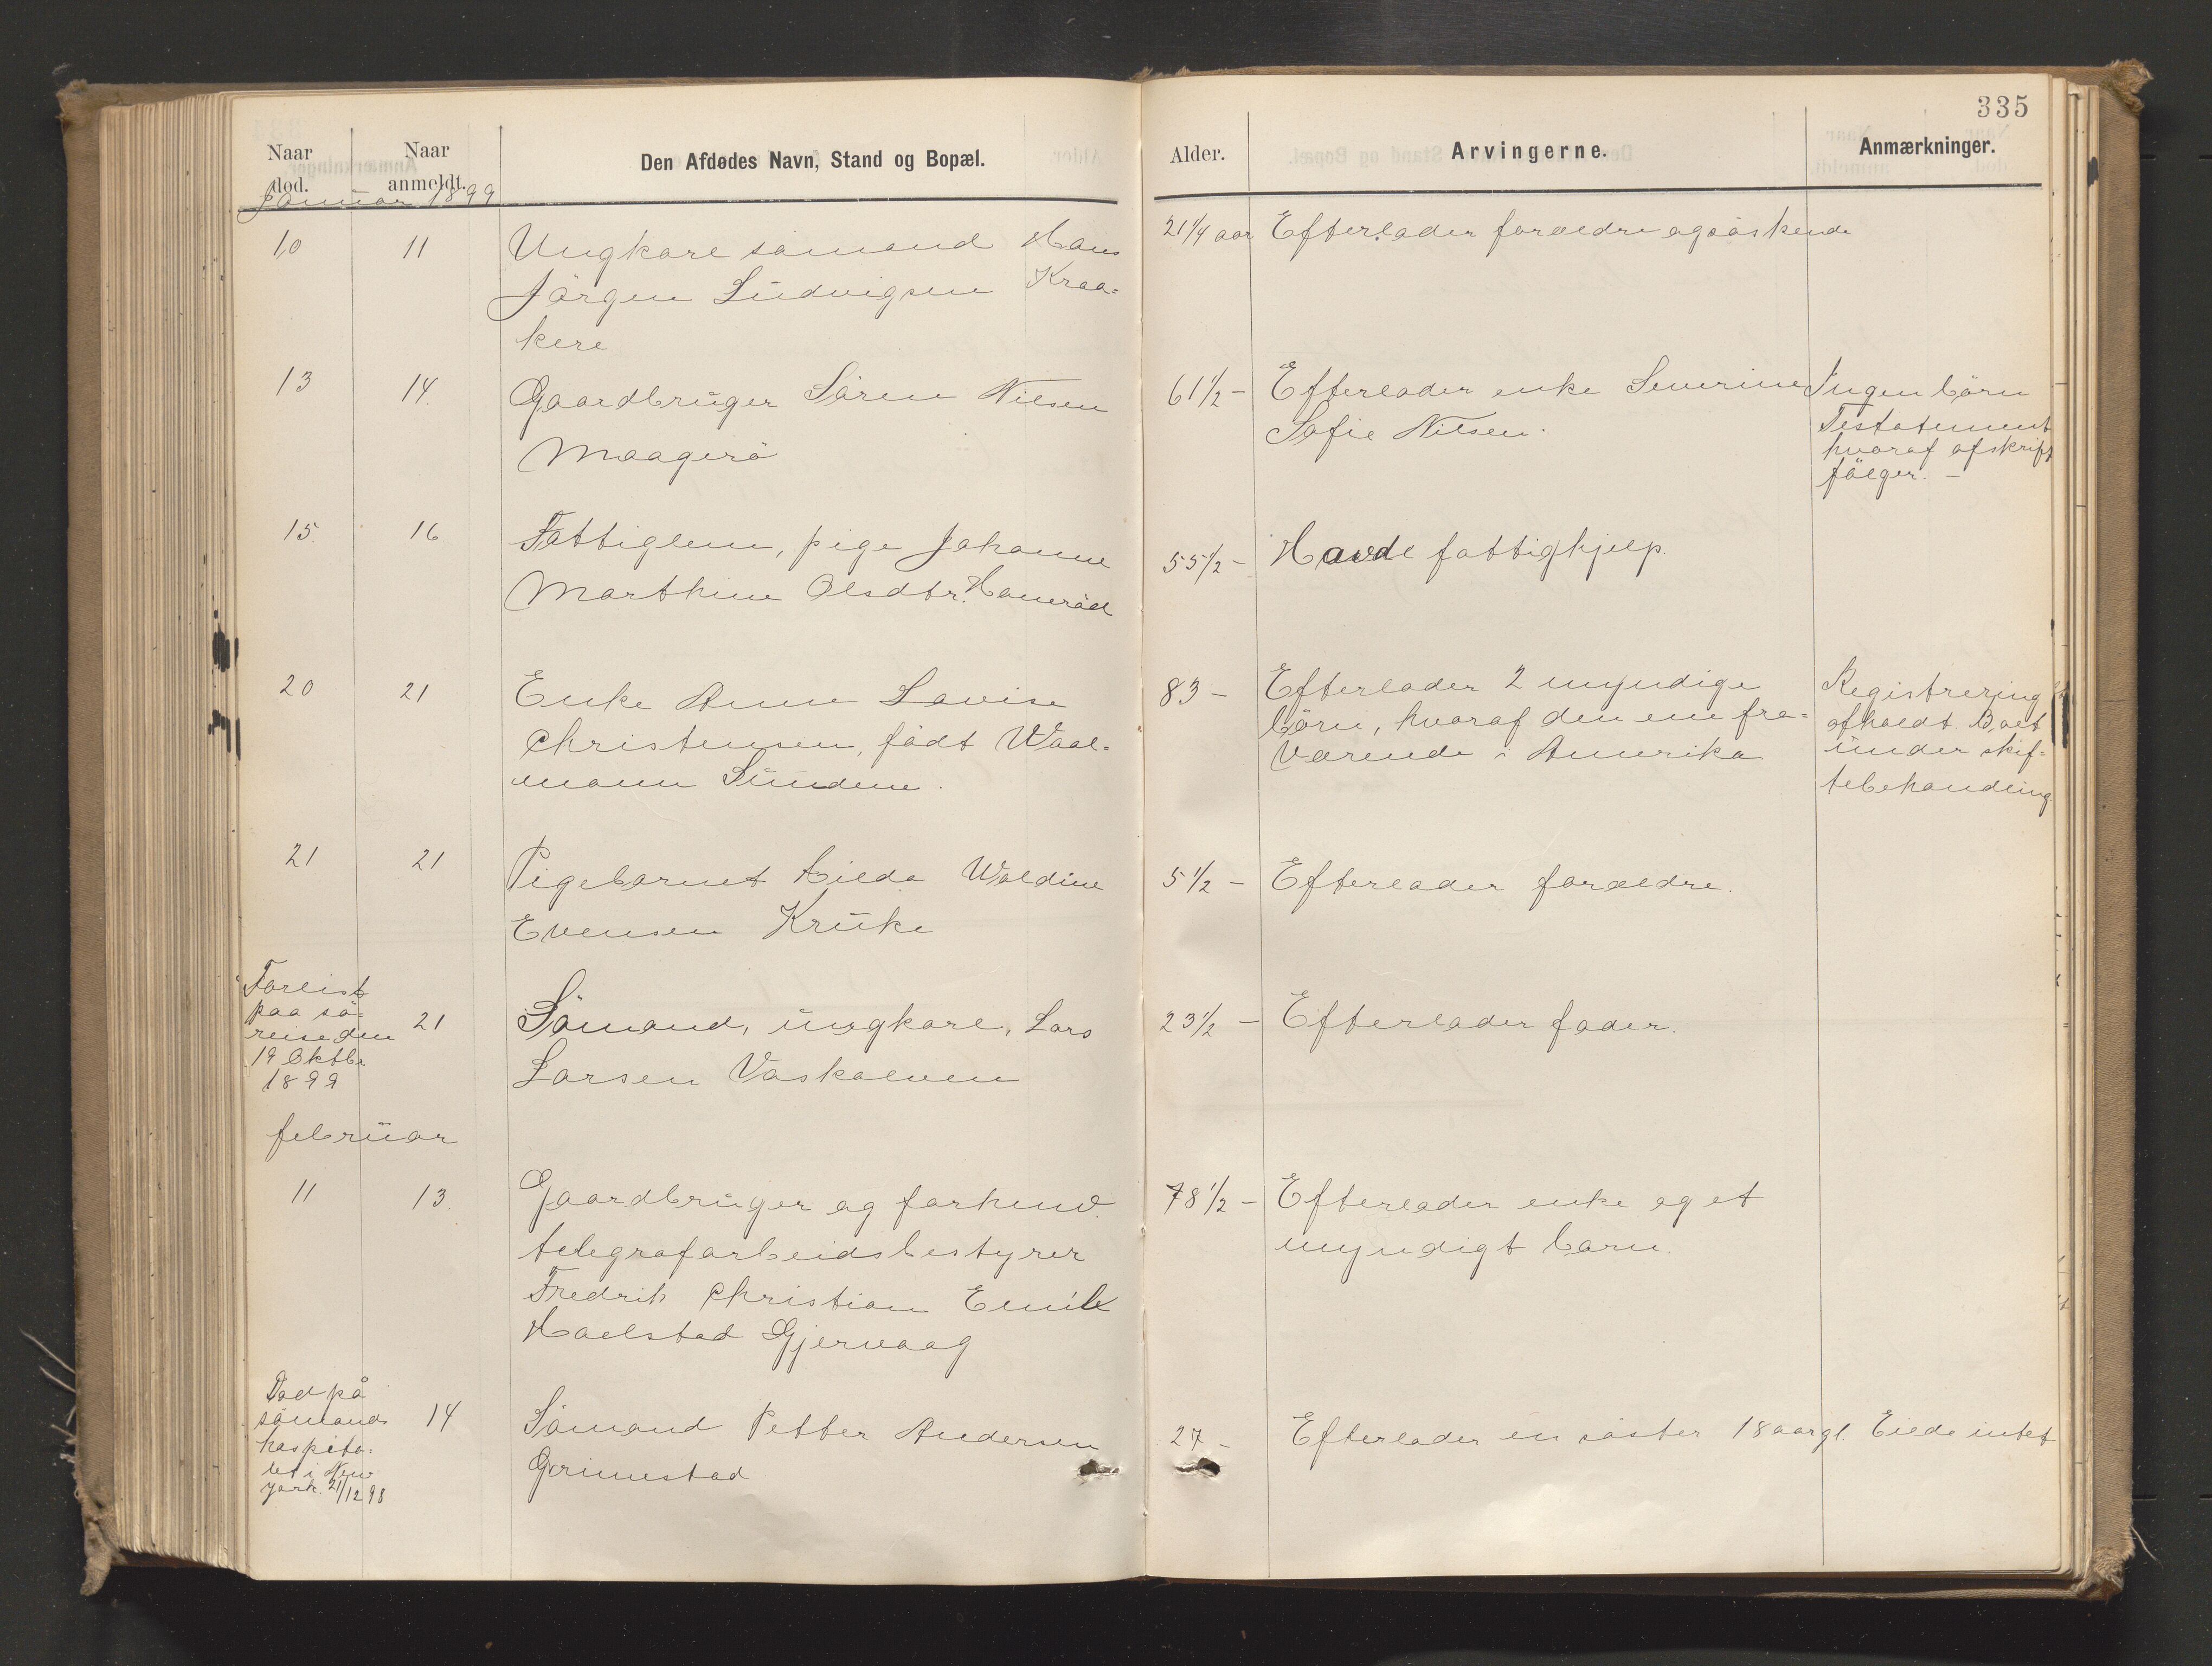 335
Naar død. Naar anmeldt. Den Afdødes Navn, Stand og Bopæl. Alder. Arvingerne. Anmærkninger.
Januar 1899
10 11 Ungkarl sömand Hans
Jörgen Ludvigsen Kraa-
kere
21 1/4 aar Efterlader forældre og söskende
13 14. Gaardbruger Sören Nilsen
Maagerö
61 1/2 - Efterlader enke Severine
Sofie Nilsen.
Ingen börn
Testatement
hvoraf afskrift
fölger. -
15. 16 Fattiglem, pige Johanne
Marthine Olsdtr. Haneröd
55 1/2 - Havde fattighjelp.
20 21 Enke Anne Lovise
Christensen, födt Waal-
mann Sundene.
83 - Efterlader 2 myndige
börn, hvoraf den ene fra-
værende i Amerika
Registrering
afholdt Boet
under skif-
tebehandling.
21 21 Pigebarnet Hilda Waldine
Evensen Kruke
5 1/2 - Efterlader forældre.
Forlist
paa sö-
reise den
19 Oktbr
1899
21 Sömand, ungkarl, Lars
Larsen Vaskalven
23 1/2 - Efterlader fader.
februar
11 13. Gaardbruger og forhenv.
telegrafarbeidsbestyrer
Fredrik Christian Emil
Holstad Gjervaag
78 1/2 - Efterlader enke og et
myndigt barn.
Död på
sömands
hospita-
let i New
york. 21/12 98
14 Sömand Petter Andersen
Grimestad
27 - Efterlader en söster 18 aar gl. Eiede intet